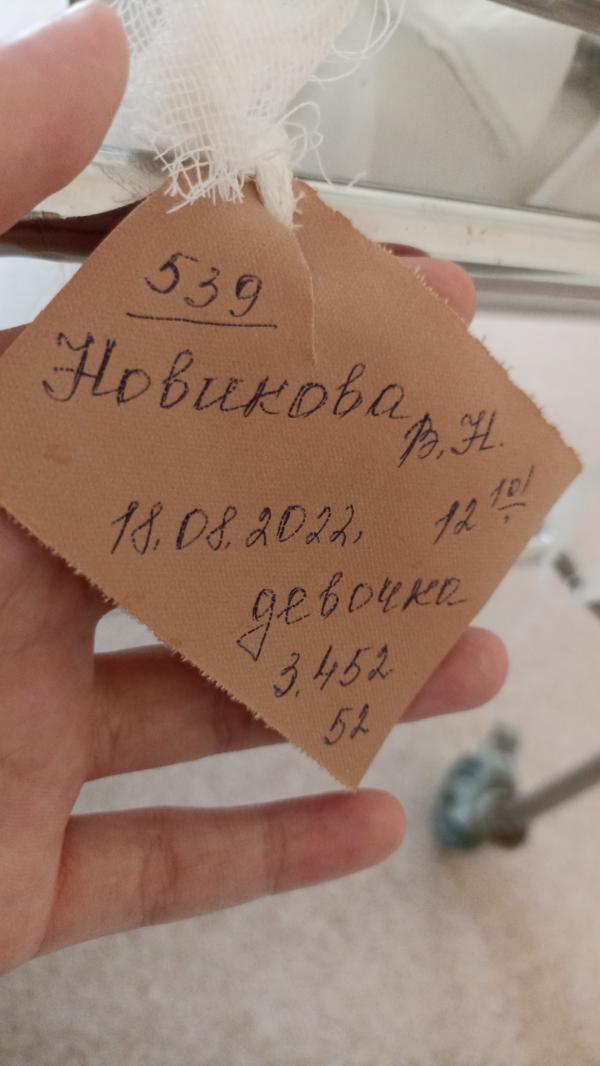 539
Новикова
В.Н.
18.08.2022, 12 10/
девочка
3.452
52